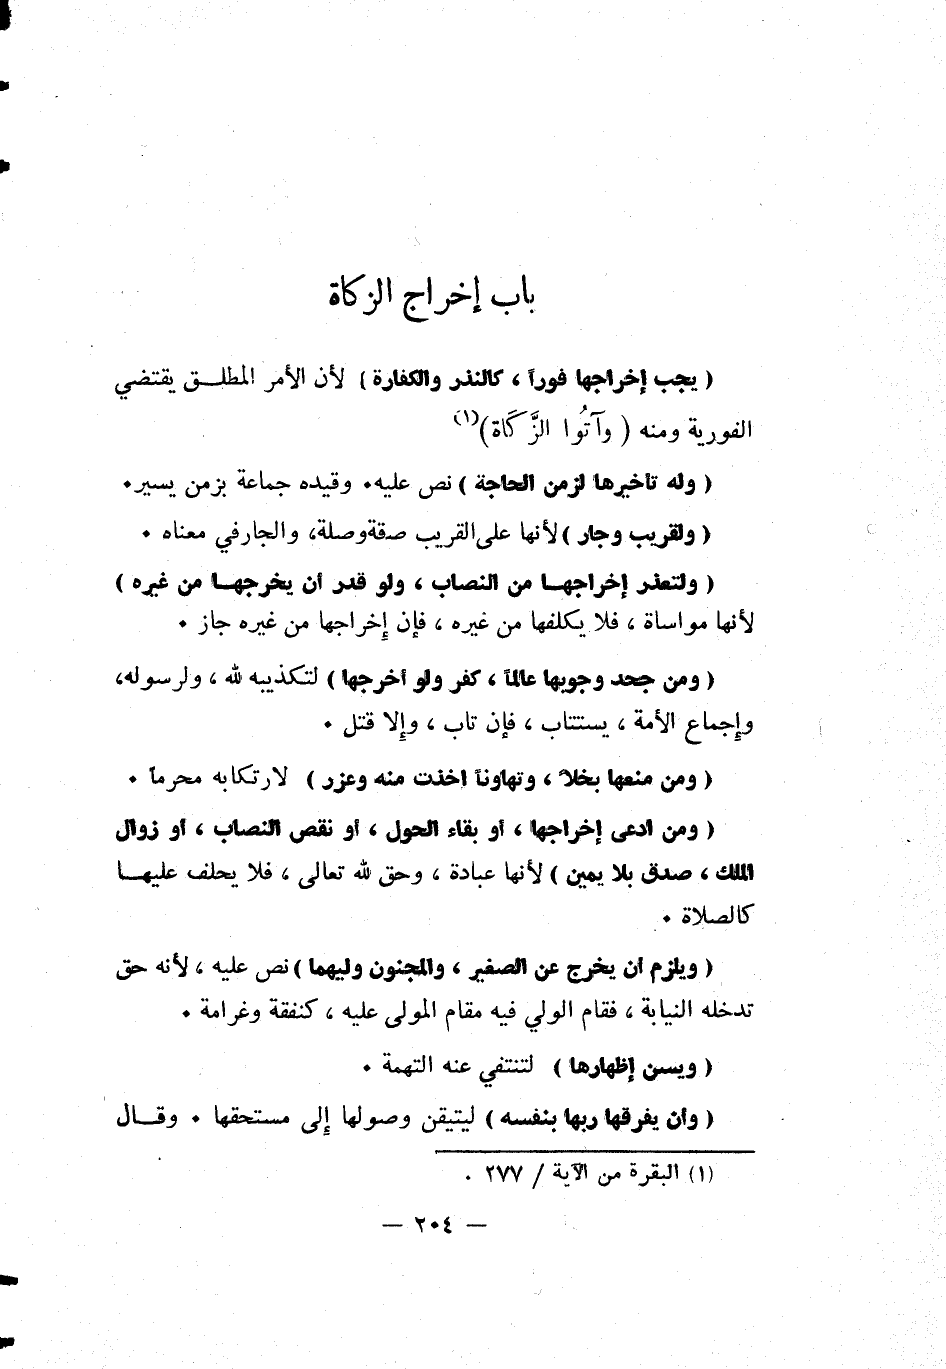 باب إخراج الزكاة
( يجب إخراجها فوراً ، كالنذر والكفارة ) لأن الأمر المطلـــق يقتضي
الفورية ومنه ( وآتُوا الزَّكَاة)(١)
( وله تأخيرها لزمن الحاجة ) نص عليه٠ وقيده جماعة بزمن يسير٠
( ولقريب وجار ) لأنها على القريب صقة وصلة، والجار في معناه ٠
( ولتعذر إخراجهــا من النصاب ، ولو قدر أن يخرجهــا من غيره )
لأنها مواساة ، فلا يكلفها من غيره ، فإن إخراجها من غيره جاز ٠
( ومن جحد وجوبها عالماً ، كفر ولو أخرجها ) لتكذيبه لله ، ولرسوله،
وإجماع الأمة ، يستتاب ، فإن تاب ، وإلا قتل ٠
( ومن منعها بخلاً ، وتهاوناً اخذت منه وعزر ) لارتكابه محرماً ٠
( ومن ادعى إخراجها ، أو بقاء الحول ، أو نقص النصاب ، أو زوال
الملك ، صدق بلا يمين ) لأنها عبادة ، وحق لله تعالى ، فلا يحلف عليهــا
كالصلاة ٠
( ويلزم أن يخرج عن الصغير ، والمجنون وليهما ) نص عليه ، لأنه حق
تدخله النيابة ، فقام الولي فيه مقام المولى عليه ، كنفقة وغرامة ٠
( ويسن إظهارها ) لتنتفي عنه التهمة ٠
( وأن يفرقها ربها بنفسه ) ليتيقن وصولها إلى مستحقها ٠ وقــال
(١) البقرة من الآية / ٢٧٧ .
— ٢٠٤ —